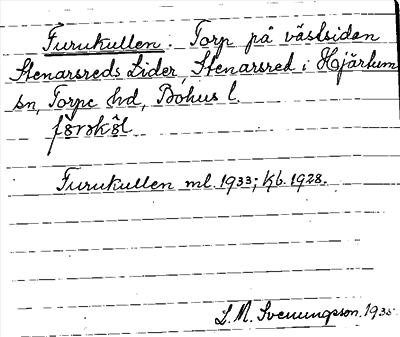 Furukullen: Torp på västsidan
Stenarsreds Lider, Stenarsred i Hjärtum
sn, Torpe hd, Bohus l.
Furukullen ml. 1933; Kb. 1928.
L. M. Svenungsson. 1935